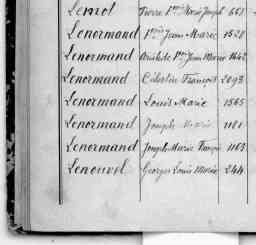 Lemol Pierre Marie Joseph 661
Lenormand Jean Marie 1528
Lenormand Aristide Jean Marie 1642
Lenormand Célestin François 2093
Lenormand Louis Marie 1565
Lenormand Joseph Marie 1181
Lenormand Joseph Marie François 1163
Lenouvel Georges Louis Marie 244